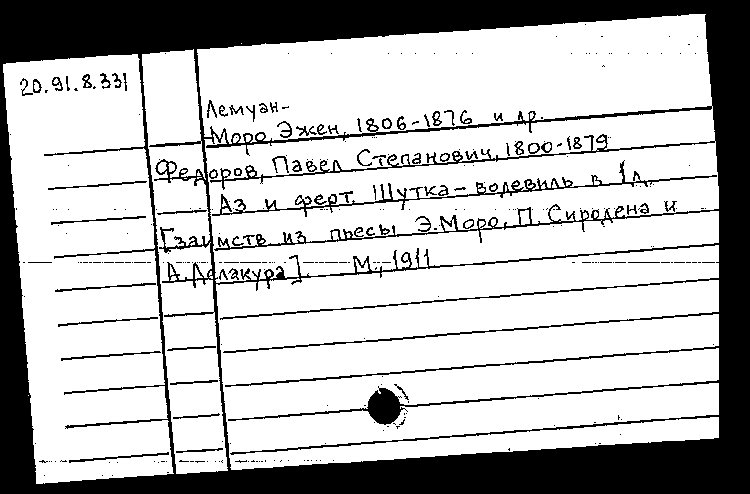 20.91.8.331
Лемуан-
Моро, Эжен, 1806-1876 и др.
Федоров, Павел Степанович, 1800-1879
Аз и ферт. Шутка-водевиль в 1 д.
[заимств из пьесы Э.Моро, П. Сиродена и
А.Делакура]. М., 1911